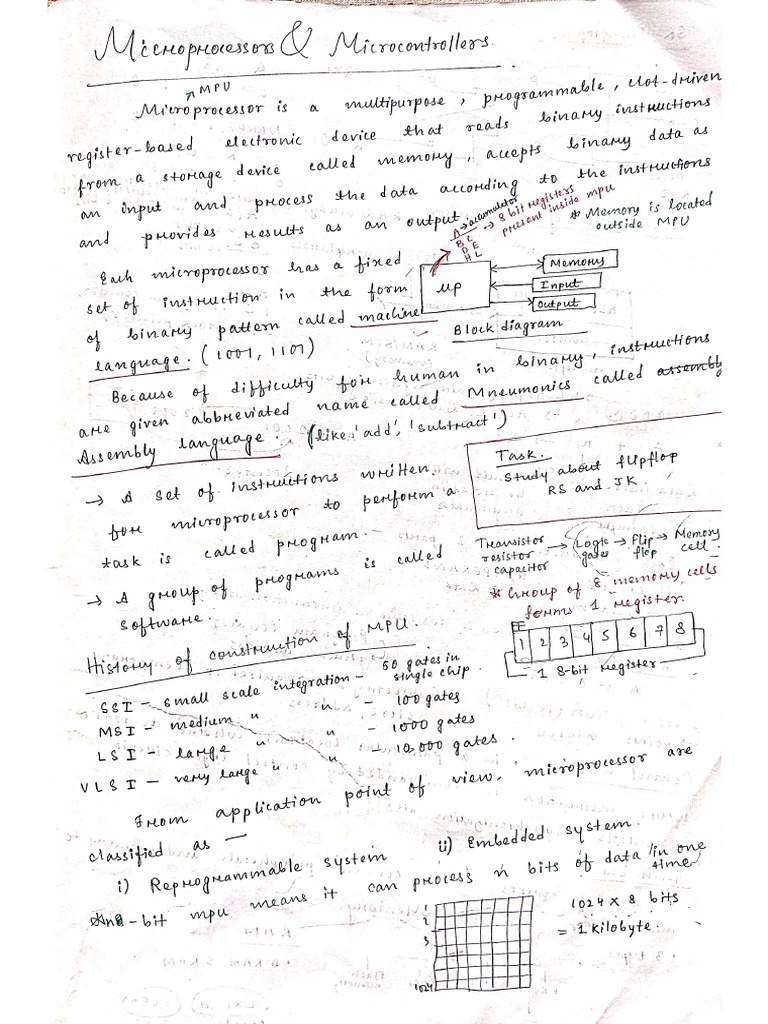 Microprocessors & Microcontrollers.
MPU
Microprocessor is a multipurpose, programmable, clot-driven
register-based electronic device that reads binary instructions
from a storage device called memory, accepts binary data as
an input and process the data according to the instructions
and provides results as an output.
A → accumulator
B C
D E
H L
→ 8 bit registers
present inside mpu
* Memory is located
outside MPU
Each microprocessor has a fixed
set of instruction in the form
of binary pattern called machine
language. (1001, 1101)
μp
Memory
Input
Output
Block diagram
Because of difficulty for human in binary, instructions
are given abbreviated name called Mneumonics called assembly
Assembly language. (like 'add', 'subtract')
→ A set of instructions written
for microprocessor to perform a
task is called program.
→ A group of programs is called
software.
Task.
Study about flipflop
RS and JK.
Transistor
resistor
capacitor
→ Logic gates → Flip flop → Memory cell.
* Group of 8 memory cells
forms 1 register.
FF
1 2 3 4 5 6 7 8
1 8-bit register
History of construction of MPU.
SSI - small scale integration - 50 gates in single chip.
MSI - medium " " - 100 gates
LSI - large " " - 1000 gates
VLSI - very large " " - 10,000 gates.
From application point of view, microprocessor are
classified as —
i) Reprogrammable system ii) Embedded system.
An n-bit mpu means it can process n bits of data in one time
1
2
3
1024
1024 x 8 bits
= 1 kilobyte.